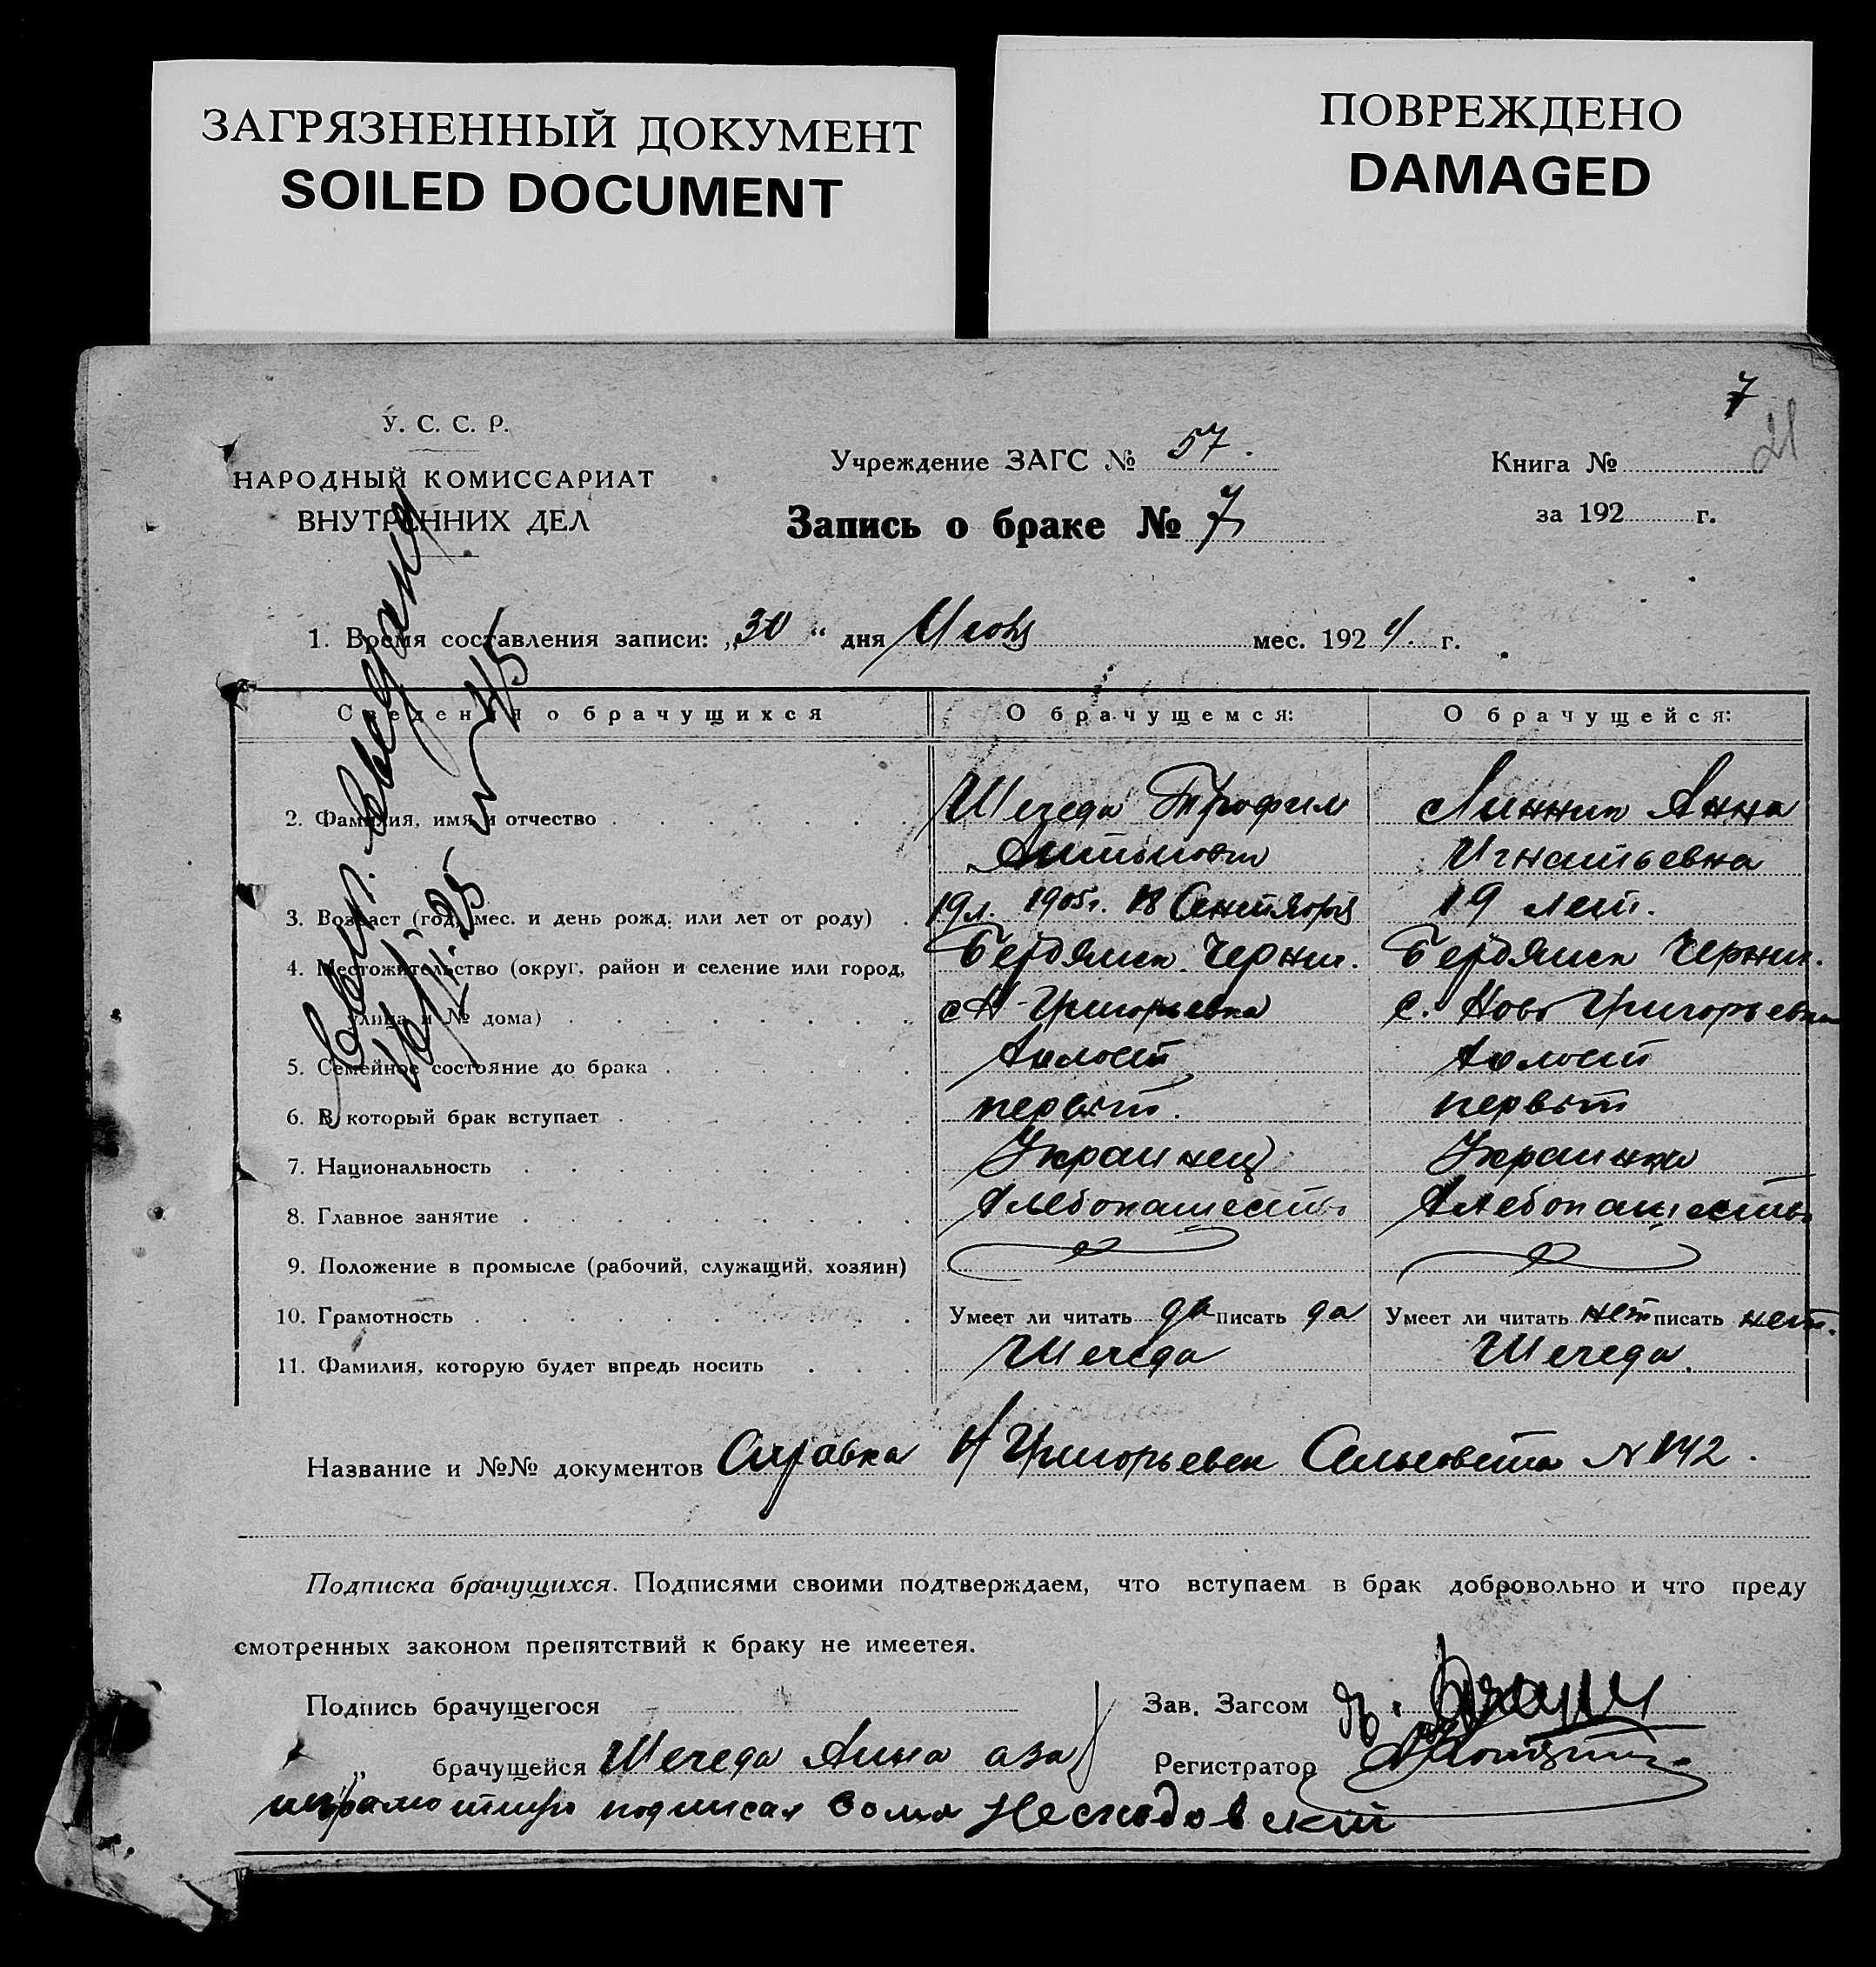 ЗАГРЯЗНЕННЫЙ ДОКУМЕНТ
SOILED DOCUMENT
ПОВРЕЖДЕНО
DAMAGED
7
21
У. С. С. Р.
НАРОДНЫЙ КОМИССАРИАТ
ВНУТРЕННИХ ДЕЛ
Учреждение ЗАГС № 57.
Книга №
за 192 г.
Запись о браке № 7
1. Время составления записи: „30“ дня мес. 1924. г.
Сведения о брачущихся
О брачущемся:
О брачущейся:
2. Фамилия, имя и отчество
Шегеда Трофим
Антонович
Линник Анна
Игнатьевна
3. Возраст (год, мес. и день рожд. или лет от роду)
19 л. 1905 г. 18 Сентября
19 лет.
4. Местожительство (округ, район и селение или город,
улица и № дома)
Бердянск. Черниг.
с Н-Григорьевка
Бердянск Черниг.
с. Ново Григорьевка
5. Семейное состояние до брака
Холост
Холост
6. В который брак вступает
первый.
первый
7. Национальность
Украинец
Украинка
8. Главное занятие
Хлебопашество
Хлебопашество
9. Положение в промысле (рабочий, служащий, хозяин)
10. Грамотность
Умеет ли читать да писать да
Умеет ли читать нет писать нет.
11. Фамилия, которую будет впредь носить
Шегеда
Шегеда.
Название и №№ документов Справка Н Григорьевск Сельсовета № 142.
Подписка брачущихся. Подписями своими подтверждаем, что вступаем в брак добровольно и что преду
смотренных законом препятствий к браку не имеетея.
Подпись брачущегося
Зав. Загсом
„ брачущейся Шегеда Анна а за
Регистратор
неграмотную подписал